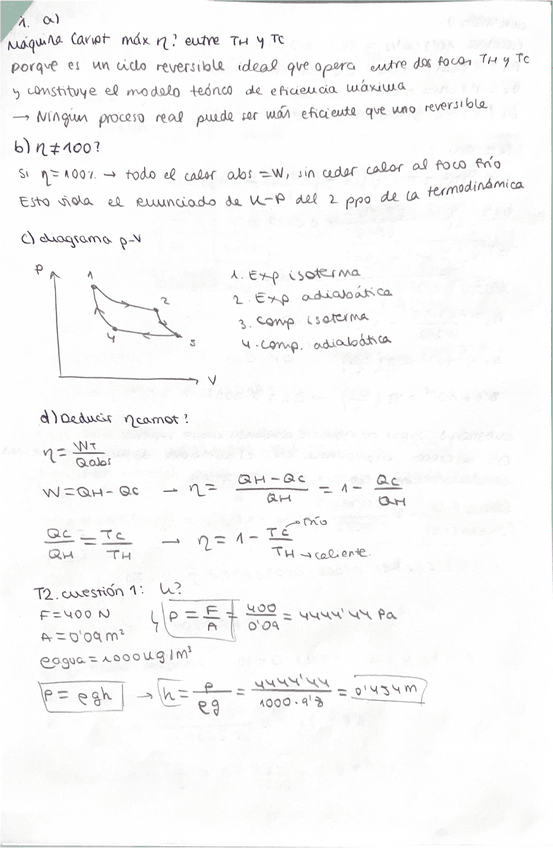 1. a)
Máquina Carnot máx η? entre TH y TC
porque es un ciclo reversible ideal que opera entre dos focos TH y TC
y constituye el modelo teórico de eficiencia máxima
→ Ningún proceso real puede ser más eficiente que uno reversible
b) η≠100?
Si η=100% → todo el calor abs = W, sin ceder calor al foco frío
Esto viola el enunciado de K-P del 2 ppo de la termodinámica
c) diagrama p-V
P
1
2
3
4
V
1. Exp isoterma
2. Exp adiabática
3. Comp isoterma
4. comp. adiabática
d) Deducir ηcarnot?
η = WT / Qabs
W = QH - QC → η = QH - QC / QH = 1 - QC / QH
QC / QH = TC / TH → η = 1 - TC → frío / TH → caliente
T2. cuestión 1: h?
F = 400 N
P = F / A = 400 / 0'09 = 4444'44 Pa
A = 0'09 m²
ρagua = 1000 kg/m³
P = ρgh → h = P / ρg = 4444'44 / 1000·9'8 = 0'454 m